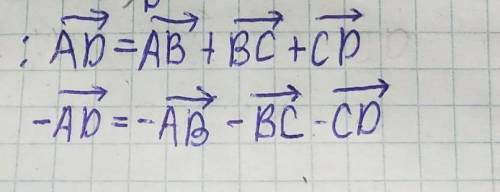 : $\overrightarrow{AD} = \overrightarrow{AB} + \overrightarrow{BC} + \overrightarrow{CD}$
$-\overrightarrow{AD} = -\overrightarrow{AB} - \overrightarrow{BC} - \overrightarrow{CD}$